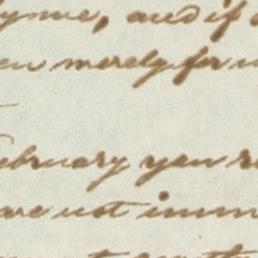 lynne, and if
en merely for
ebruary you
are not imm